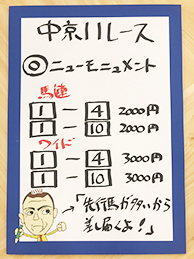 中京11レース
◎ニューモニュメント
馬連
1－4 2000円
1－10 2000円
ワイド
1－4 3000円
1－10 3000円
「先行馬が多いから
差し届くよ!」